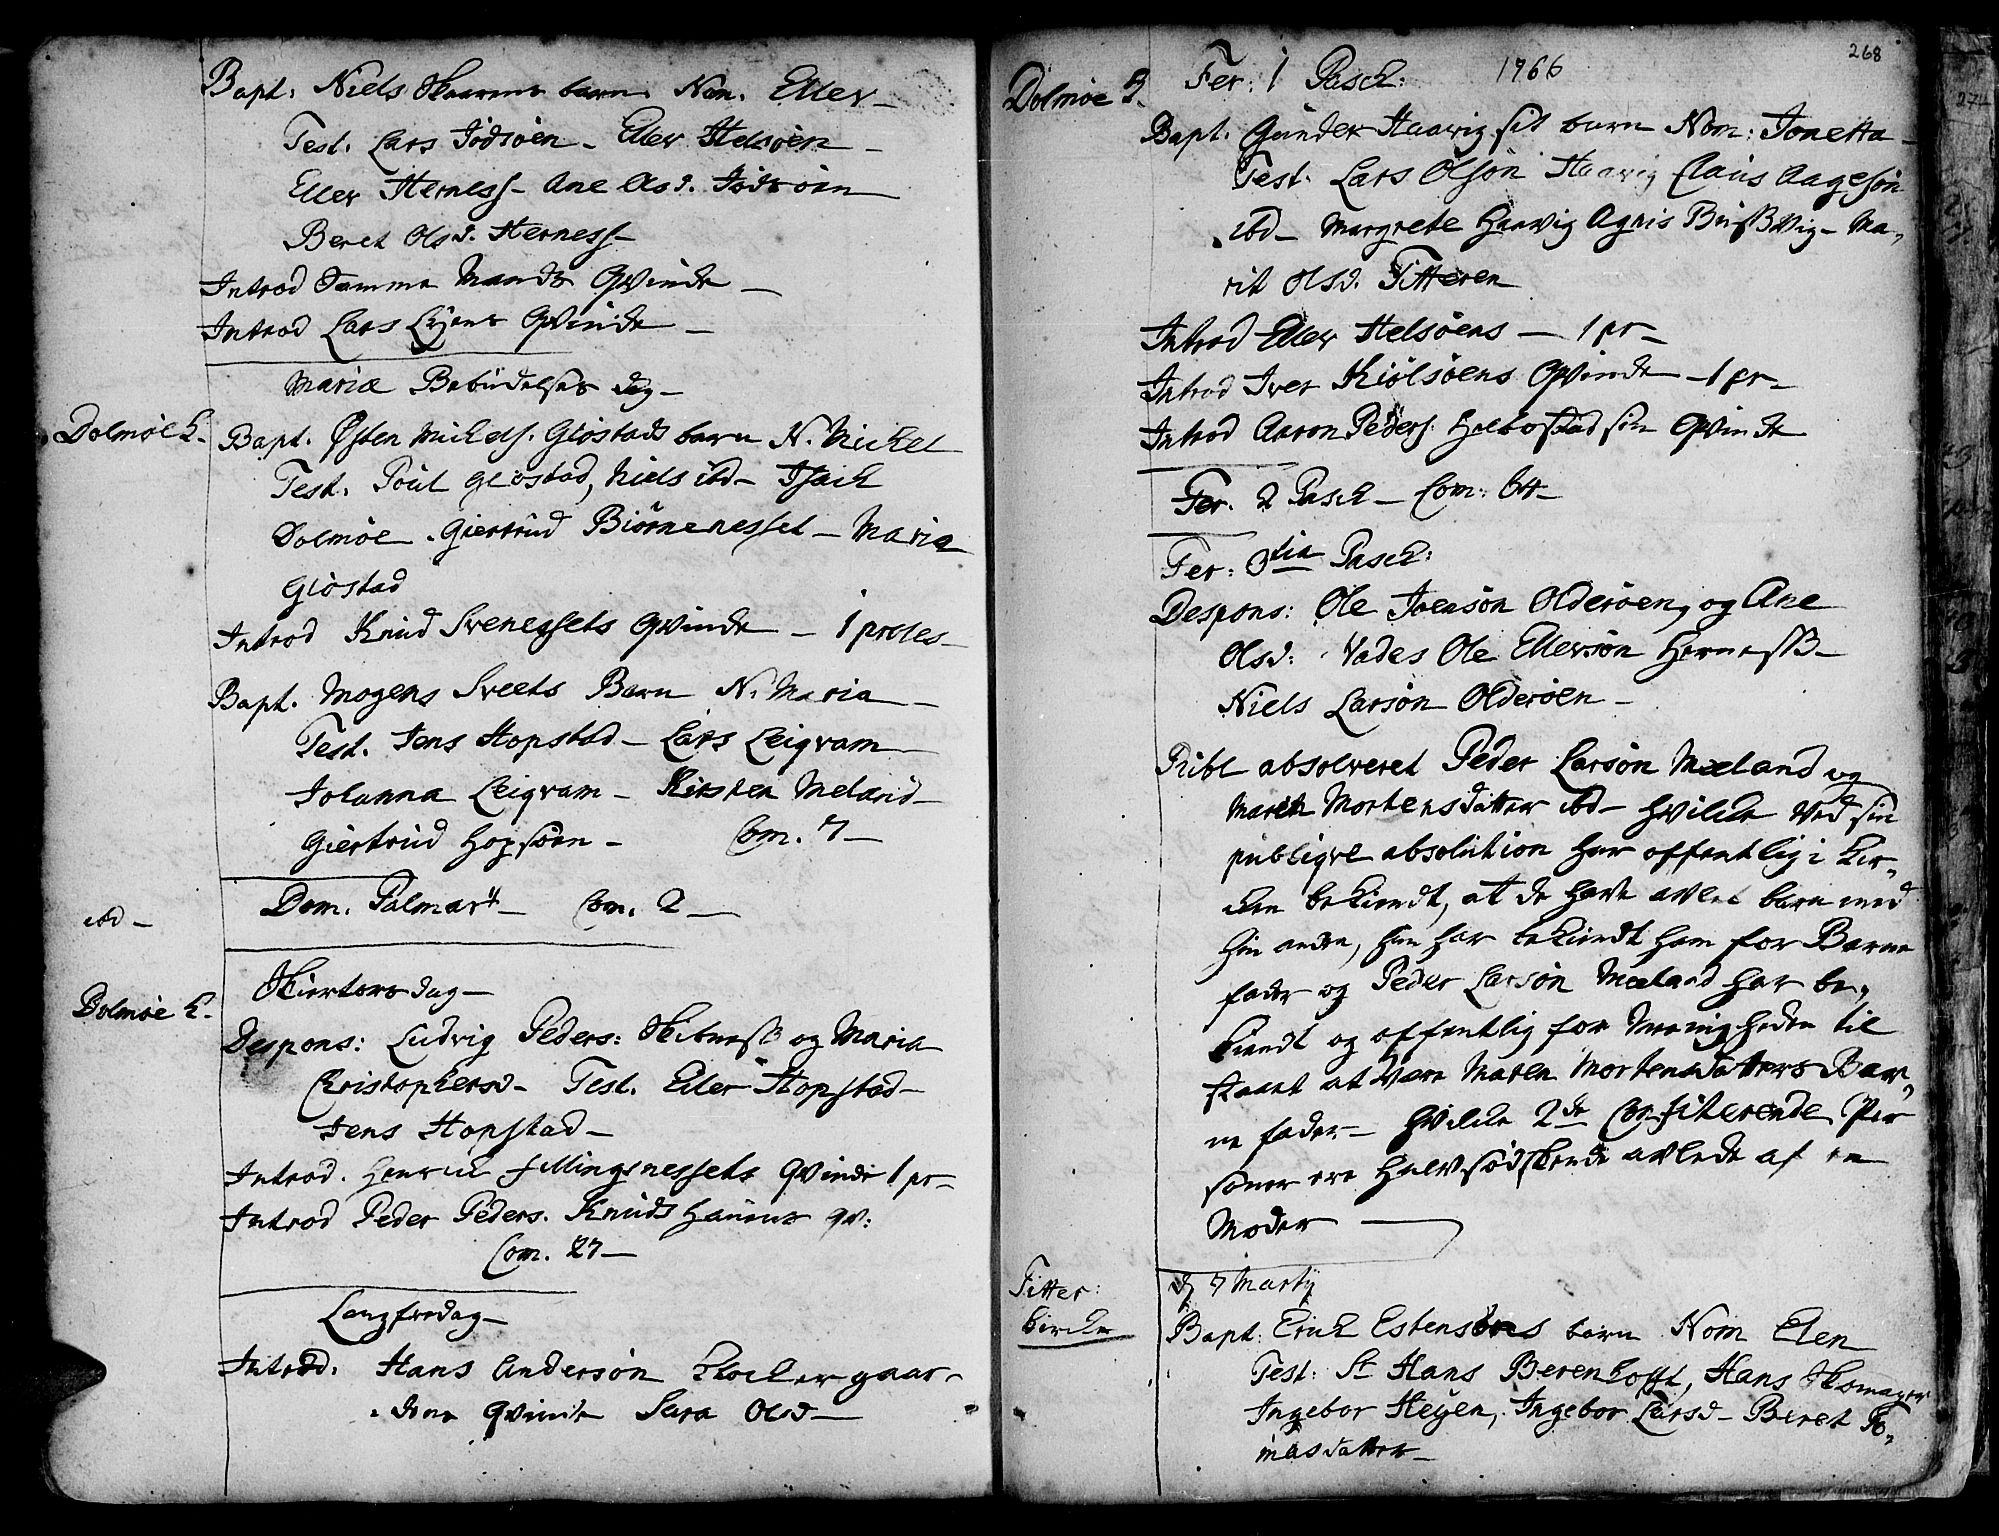 Bapt. Niels Skaarens barn Nom. Eller
Test. Lars Jødsøen - Eller Helsøen
Eller Herness - Ane Olsd. Jødsøen
Beret Olsd. Herness
Introd Samme Mands Qvinde
Introd Lars Qvinde
Mariæ Bebudelses dag
Dolmøe k.
Bapt. Østen Michels. Giøstads barn N. Michel
Test. Poul Giøstad, Niels ibd - Isach
Dolmøe - Giertrud Biørnenesset - Maria
Giøstad
Introd Knud Svenessets Qvinde - 1 proles
Bapt. Mogens Sveets Barn N. Maria
Test. Jens Hopstad - Lars Leigvam
Johanna Leigvam - Kirsten Meland
Giertrud Hopsøen - Com. 7
ibd -
Dom. Palmar - Com. 2
Skiertorsdag
Dolmøe k.
Despons: Ludvig Peders: Skibness og Maria
Christophersd - Test. Eller Hopstad
Jens Hopstad
Introd. Henrich Fillingsnessets Qvinde 1 pr
Introd Peder Peders. Knudshaugens qv:
Com. 27
Langfredag
Introd: Hans Andersøn gaar-
dens Qvinde Sara Olsd
268
Dolmøe k.
Fer: 1 Pasch: 1766
Bapt. Gunder Haavig sit barn Nom: Jonetta
Test. Lars Olsøn Haavig Claus Aagesøn
ibd - Margrete Haavig Agnis Bussvig - Ma-
rit Olsd. Titteren
Introd Eller Helsøens - 1 pr
Introd Iver Kiølsøens Qvinde - 1 pr
Introd Aaron Peders. Holbostad sin Qvinde
Fer. 2 Pasch - Com: 64
Fer: 3tia Pasch:
Despons: Ole Joensøn Olderøen, og Ane
Olsd: Vades Ole Ellersøn Herness
Niels Larsøn Olderøen
Publ absolveret Peder Larsøn Mæland og
Maren Mortensdatter ibd - hvilcke ved sin
publiqve absolution har offentlig i kir-
cken bekiendt, at de have avlet barn med
hin anden, hun har bekiendt ham for Barne
fader og Peder Larsøn Mæland har be-
kiendt og offentlig for Meenigheden til
staaet at være Maren Mortensdatters Bar-
ne fader - hvilcke 2de Confiterende Per
soner ere Halvsødskende avlede af en
Moder
Fitter:
kircke
d 7 Martij
Bapt. Erich Estensøns barn Nom Elen
Test: Sr Hans Berenhofft, Hans Skomager
Ingebor Heyen, Ingebor Larsd - Beret To-
masdatter